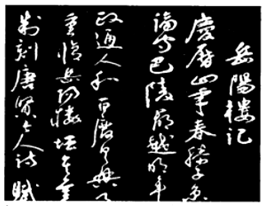 岳陽楼记
慶曆四年春滕子京
謫守巴陵郡越明年
政通人和百廢具興
重修岳陽樓增其舊
制刻唐賢今人詩賦